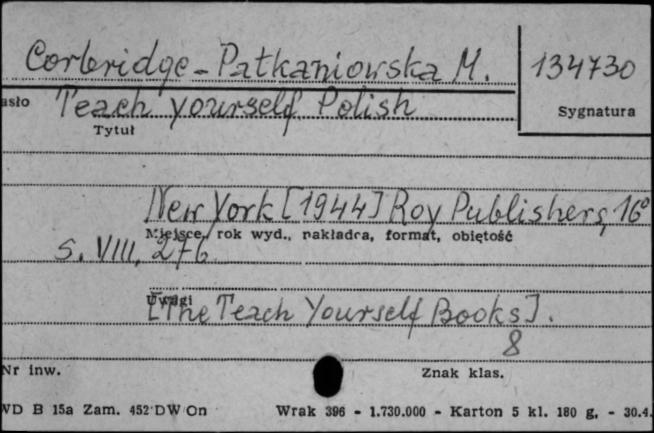 Corbridge-Patkaniowska M. 134730
asło Teach yourself Polish Sygnatura
Tytuł
New York [1944] Roy Publishers, 16°
Miejsce, rok wyd., nakładca, format, objętość
s. VIII, 276
Uwagi
[The Teach Yourself Books].
8
Nr inw. Znak klas.
WD B 15a Zam. 452 DW/On Wrak 396 - 1.730.000 - Karton 5 kl. 180 g, - 30.4.